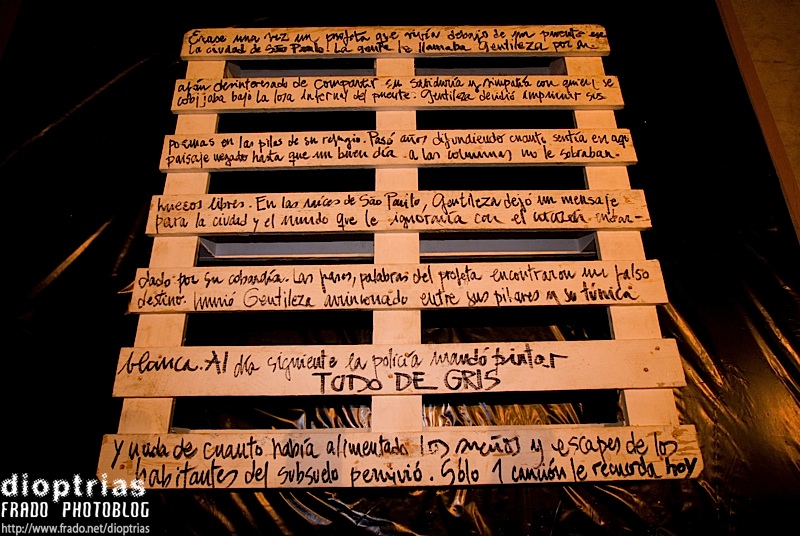 Erase una vez un profeta que vivía debajo de un puente en
la ciudad de São Paulo. La gente le llamaba Gentileza por su
afán desinteresado de compartir su sabiduría y simpatía con quien se
cobijaba bajo la losa infernal del puente. Gentileza decidió imprimir sus
poemas en las pilas de su refugio. Pasó años difundiendo cuanto sentía en aquel
paisaje negado hasta que un buen día a las columnas no le sobraban
huesos libres. En las raíces de São Paulo, Gentileza dejó un mensaje
para la ciudad y el mundo que le ignoraría con el corazón
dado por su cobardía. Las palabras del profeta encontraron un falso
destino. Murió Gentileza arrinconado entre sus pilares y su túnica
blanca. Al día siguiente la policía mandó pintar
TODO DE GRIS
Y nada de cuanto había alimentado los sueños y escapes de los
habitantes del subsuelo pervivió. Sólo 1 canción le recuerda hoy
dioptrias
FRADO PHOTOBLOG
http://www.frado.net/dioptrias